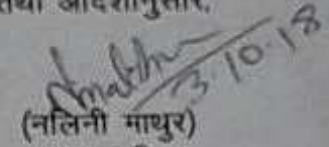 तथा आदेशानुसार,
3.10.18
(नलिनी माथुर)